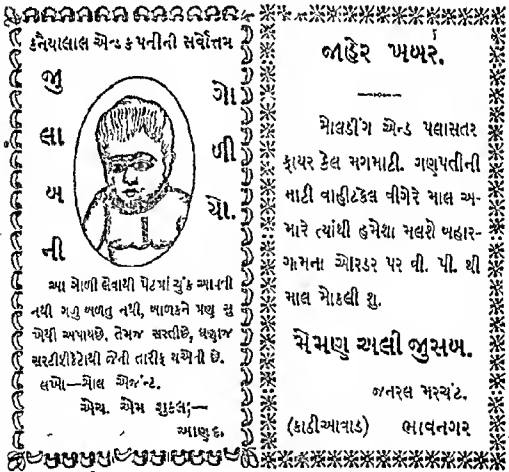 કનૈયાલાલ એન્ડ કંપનીની સર્વોત્તમ
જુલાબની
ગોળીયો.
આ ગોળી લેવાથી પેટમાં ચુંક આવતી
નથી ગળુ બળતુ નથી, બાળકને પણ સુ
ખેથી અપાયછે. તેમજ સસ્તીછે, ઘણાજ
સરટીફીકેટોથી જેની તારીફ થએની છે.
લખો—એાલ એજંન્ટ.
એચ. એમ શુકલ;—
આણંદ.
જાહેર ખબર.
મોલડીંગ એન્ડ પલાસતર
ફાયર કેલ મગમાટી. ગણપતીની
માટી વાહીટકેલ વીગેરે માલ અ-
મારે ત્યાંથી હમેશા મલશે બહાર-
ગામના ઓરડર પર વી. પી. થી
માલ મોકલી શુ.
મેમણ અલી જુસબ.
જનરલ મરચંટ.
(કાઠીઆવાડ) ભાવનગર